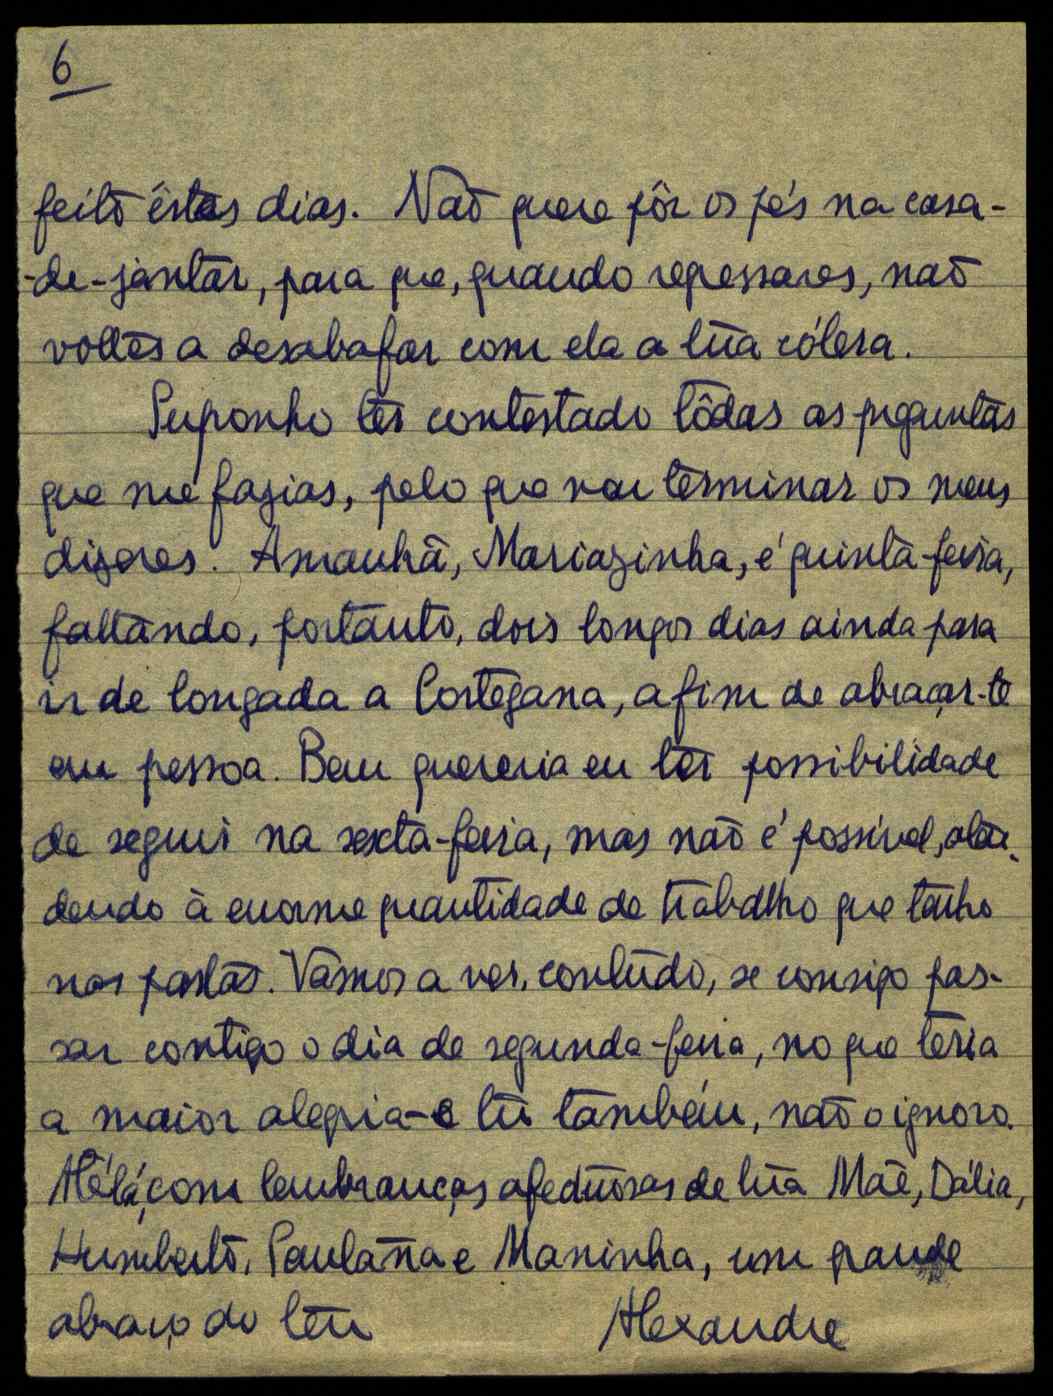 6
feito êstes dias. Não quere pôr os pés na casa-
-de-jantar, para que, quando regressares, não
voltes a desabafar com ela a tua cólera.
Suponho ter contestado tôdas as preguntas
que me fazias, pelo que vou terminar os meus
dizeres. Amanhã, Mariazinha, é quinta-feira,
faltando, portanto, dois longos dias ainda para
ir de longada a Cortegana, a fim de abraçar-te
em pessoa. Bem quereria eu ter possibilidade
de seguir na sexta-feira, mas não é possível, aten-
dendo à enorme quantidade de trabalho que tenho
nas pastas. Vamos a ver, contudo, se consigo pas-
sar contigo o dia de segunda-feira, no que teria
a maior alegria - e tu também, não o ignoro.
Até lá, com lembranças afectuosas de tua Mãe, Dália,
Humberto, e Maninha, um grande
abraço do teu Alexandre